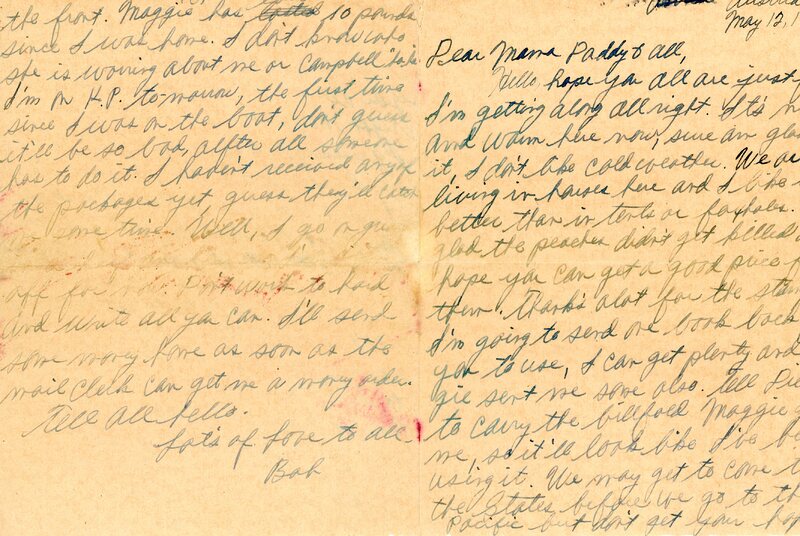 Austria
May 12, 1
Dear Mama Daddy & all,
Hello hope you all are just
I'm getting along all right. It's n
and warm here now, sure am glad
it, I don't like cold weather. We are
living in houses here and I like
better than in tents or foxholes.
glad the peaches didn't get killed
hope you can get a good price f
them. Thanks alot for the stam
I'm going to send one book back
you to use, I can get plenty and
gie sent me some also. Tell
to carry the billfold Maggie g
me, so it'll look like I've be
using it. We may get to come t
the States before we go to th
Pacific but don't get your hop
the front. Maggie has 10 pounds
since I was home. I don't know who
she is worring about me or Campbell "ha ha"
I'm on K.P. to-marrow, the first time
since I was on the boat, don't guess
it'll be so bad, alfter all someone
has to do it. I haven't received any of
the packages yet guess they'll catch
some time. Well, I go on guard
off for now. Don't work to hard
and write all you can. I'll send
some money home as soon as the
mail clerk can get me a money order.
Tell all hello.
Lots of love to all
Bob